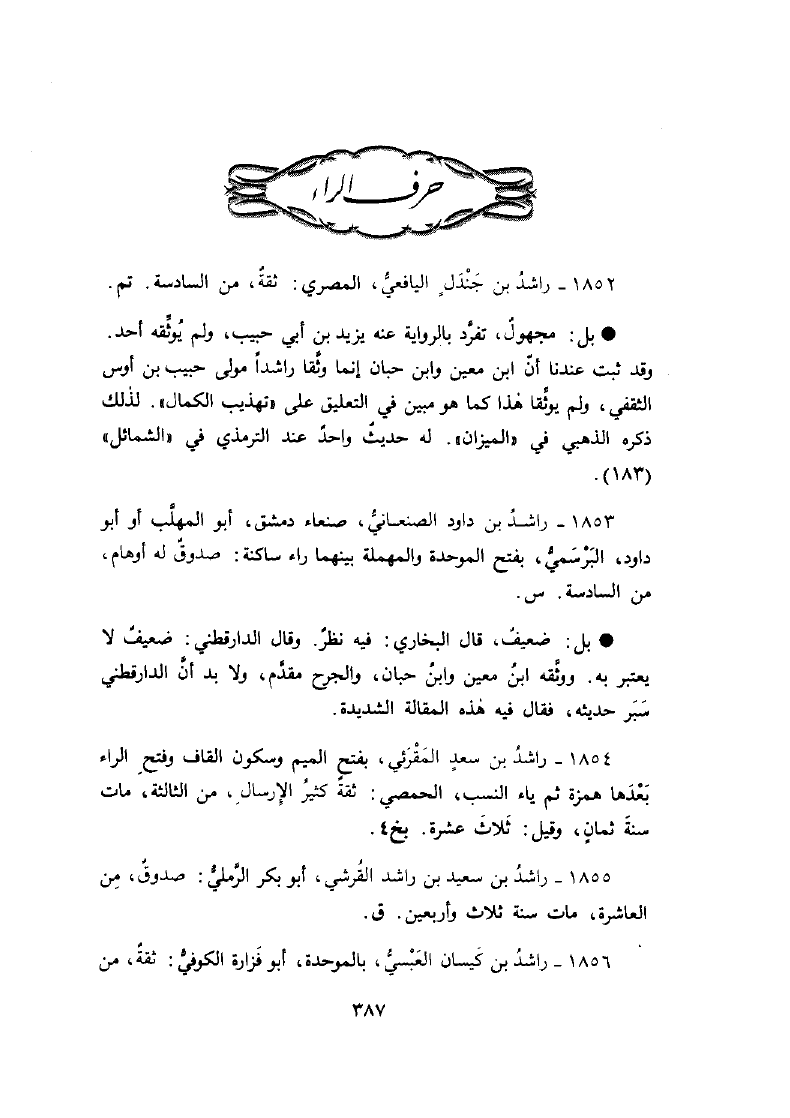 حرف الراء
١٨٥٢ - راشدُ بن جَنْدَلٍ اليافعيُّ، المصري: ثقةٌ، من السادسة. تم.
● بل: مجهولٌ، تفرَّد بالرواية عنه يزيد بن أبي حبيب، ولم يُوثِّقه أحد.
وقد ثبت عندنا أنّ ابن معين وابن حبان إنما وثَّقا راشداً مولى حبيب بن أوس
الثقفي، ولم يوثِّقا هٰذا كما هو مبين في التعليق على «تهذيب الكمال». لذٰلك
ذكره الذهبي في «الميزان». له حديثٌ واحدٌ عند الترمذي في «الشمائل»
(١٨٣).
١٨٥٣ - راشـدُ بن داود الصنعـانيُّ، صنعاء دمشق، أبو المهلَّب أو أبو
داود، البَرْسَميُّ، بفتح الموحدة والمهملة بينهما راء ساكنة: صدوقٌ له أوهام،
من السادسة. س.
● بل: ضعيفٌ، قال البخاري: فيه نظرٌ. وقال الدارقطني: ضعيفٌ لا
يعتبر به. ووثَّقه ابنُ معين وابنُ حبان، والجرح مقدَّم، ولا بد أنَّ الدارقطني
سَبَر حديثه، فقال فيه هٰذه المقالة الشديدة.
١٨٥٤ - راشدُ بن سعدٍ المَقْرَئي، بفتح الميم وسكون القاف وفتحِ الراء
بَعْدَها همزة ثم ياء النسب، الحمصي: ثقةٌ كثيرُ الإِرسالِ، من الثالثة، مات
سنةَ ثمانٍ، وقيل: ثَلاثَ عشرة. بخ٤.
١٨٥٥ - راشدُ بن سعيد بن راشد القُرشي، أبو بكر الرَّمليُّ: صدوقٌ، مِن
العاشرة، مات سنة ثلاث وأربعين. ق.
١٨٥٦ - راشدُ بن كَيسان العَبْسيُّ، بالموحدة، أبو فَزارة الكوفيُّ: ثقةٌ، من
٣٨٧